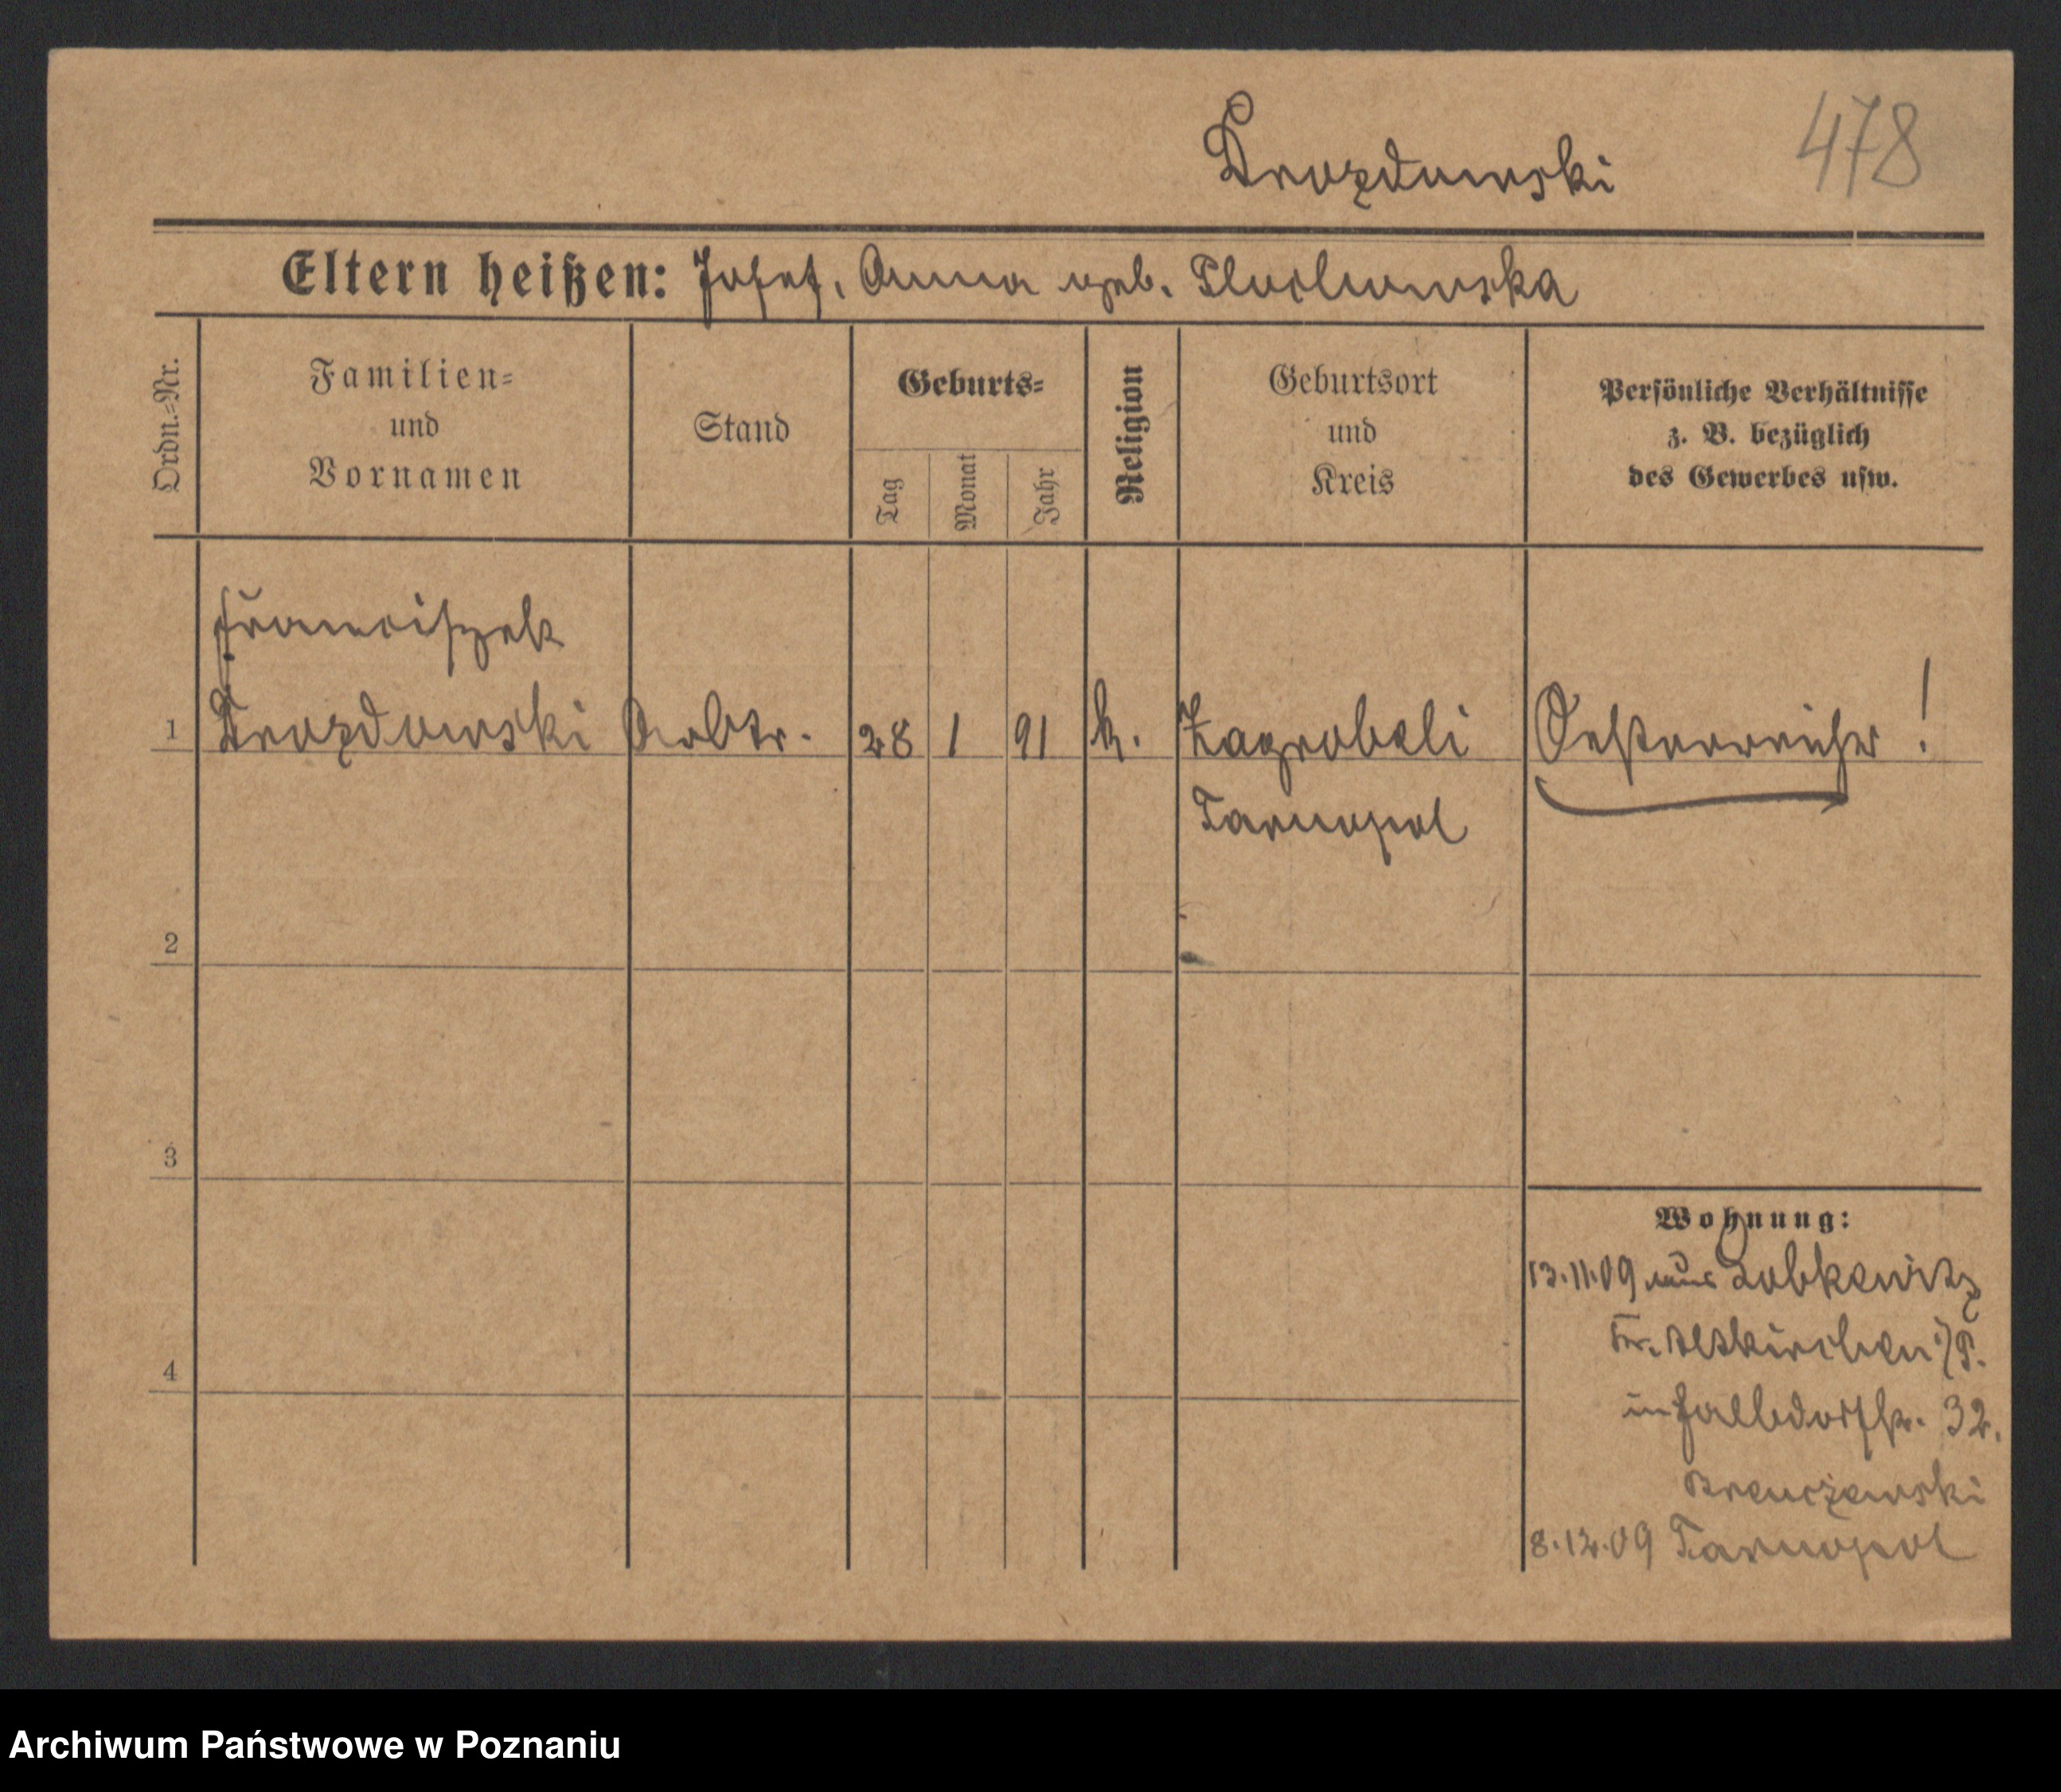 Drozdowski 478
Eltern heißen: Josef, Anna geb. Pluchowska
Ordn.-Nr.
Familien-
und
Vornamen
Stand
Geburts-
Tag
Monat
Jahr
Religion
Geburtsort
und
Kreis
Persönliche Verhältnisse
z. B. bezüglich
des Gewerbes usw.
Franciszek
1 Drozdowski Arbtr. 28 1 91 k. Zagrobeli Oesterreicher!
Tarnopol
2
3
4
Wohnung:
13.11.09 aus Lobkewitz
Kr. Altkirchen
in 32.
8.12.09 Tarnopol
Archiwum Państwowe w Poznaniu